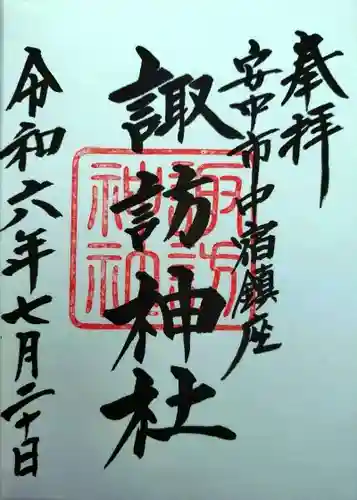 奉拝
安中市中宿鎮座
諏訪神社
諏訪神社
令和六年七月二十日